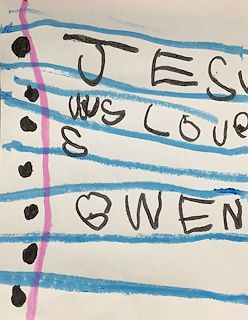 JESU
WS LOVE
S
OWEN